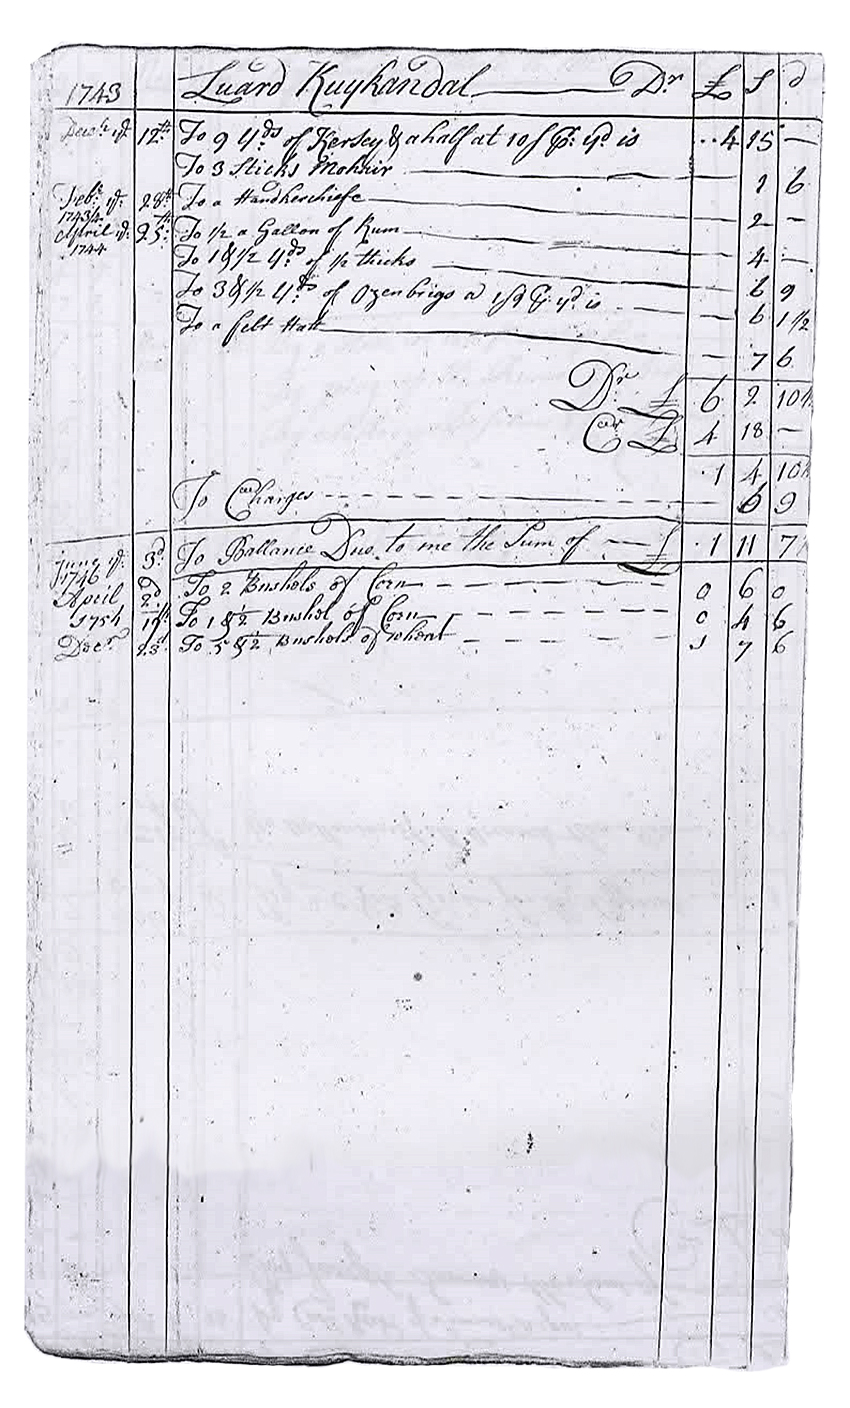 1743 Luard Kuykandal Dr £ s d
Decbr ye 12th To 9 yds of Kersey & a half at 10s pr yd is 4 15 —
To 3 Sticks Mohair 1 6
Febr ye 1743/4 28th To a Handkerchiefe 2 —
April ye 1744 25th To 1/2 a Gallon of Rum 4 —
To 1 & 1/2 yds of 1/2 thicks 6 9
To 3 & 1/2 yds of Ozenbrigs a 1s9 pr yd is 6 1 1/2
To a felt Hatt 7 6
Dr £ 6 2 10 1/2
Cr £ 4 18 —
1 4 10 1/2
To Charges 6 9
June ye 1746 3d To Ballance Due to me the Sum of £ 1 11 7
April 2d To 2 Bushols of Corn 0 6 0
1754 19th To 1 & 1/2 Bushol of Corn 0 4 6
Decr 23d To 5 & 1/2 Bushols of wheat 1 7 6